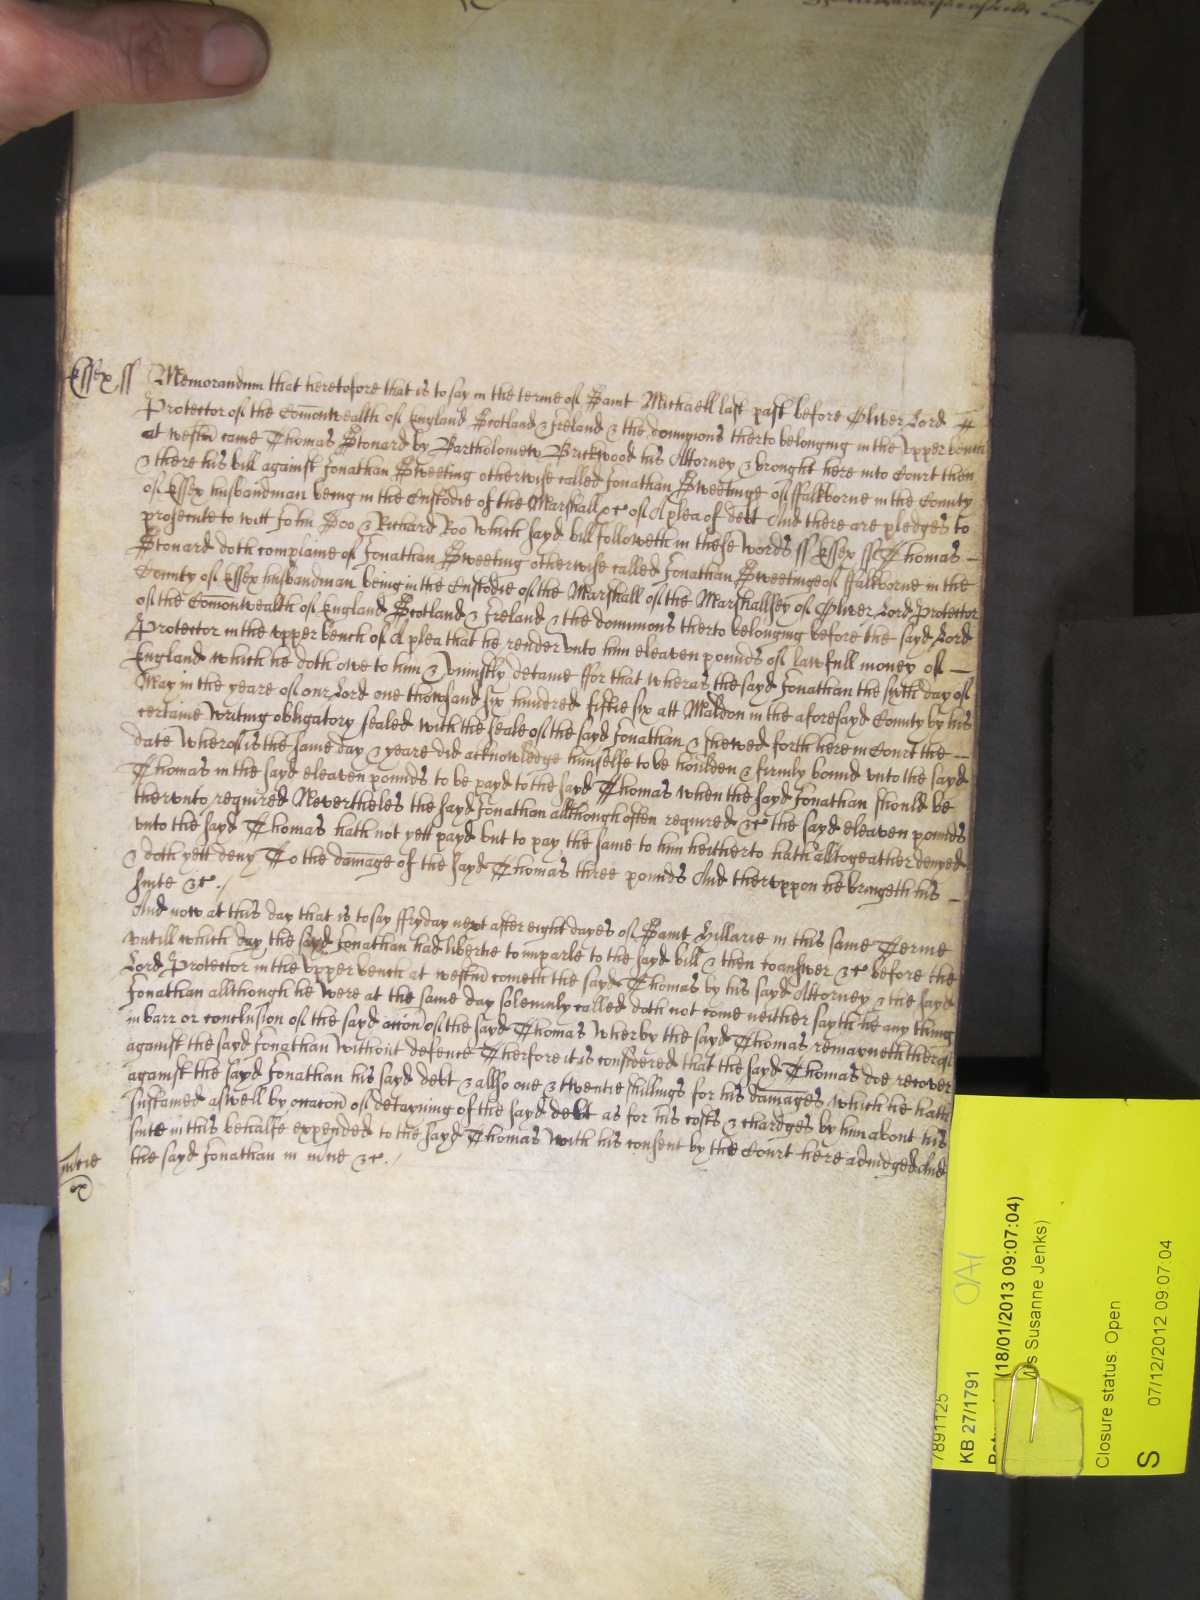 Essex ss Memorandum that heretofore that is to say in the terme of Saint Michaell last past before Oliver Lord
Protector of the Comonwealth of England Scotland & Ireland & the dominions therto belonging in the Vpper bench
at westm came Thomas Stonard by Bartholomew Brickwood his Attorney & brought here into Court then
& there his bill against Jonathan Sweeting otherwise called Jonathan Sweetinge of ffalkborne in the County
of Essex husbandman being in the Custodie of the Marshall &c of A plea of debt And there are pledges to
prosecute to witt John Doo & Richard Roo Which sayd bill followeth in these words ss Essex ss Thomas
Stonard doth complaine of Jonathan Sweeting otherwise called Jonathan Sweetinge of ffalkborne in the
County of Essex husbandman being in the Custodie of the Marshall of the Marshallsey of Oliver Lord Protector
of the Comonwealth of England Scotland & Ireland & the dominions therto belonging before the sayd Lord
Protector in the vpper bench of A plea that he render vnto him eleaven pounds of lawfull money of
England which he doth owe to him & vniustly detaine ffor that wheras the sayd Jonathan the sixth day of
May in the yeare of our Lord one thowsand six hundred fiftie six att Maldon in the aforesayd County by his
certaine Writing obligatory sealed with the seale of the sayd Jonathan & shewed forth here in Court the
date wherof is the same day & yeare did acknowledge himselfe to be houlden & firmly bound vnto the sayd
Thomas in the sayd eleaven pounds to be payd to the sayd Thomas when the sayd Jonathan should be
thervnto required Nevertheles the sayd Jonathan allthough often required &c the sayd eleaven pounds
vnto the sayd Thomas hath not yett payd but to pay the same to him heitherto hath alltogeather denyed
& doth yett deny To the damage of the sayd Thomas three pounds And thervppon he bringeth his
suite &c./
And now at this day that is to say ffryday next after eight dayes of Saint Hillarie in this same Terme
vntill which day the sayd Jonathan had libertie to imparle to the sayd bill & then to answer &c before the
Lord Protector in the Vpper bench at westm cometh the sayd Thomas by his sayd Attorney & the sayd
Jonathan allthough he were at the same day solemnly called doth not come neither sayth he any thing
in barr or conclusion of the sayd accion of the sayd Thomas Wherby the sayd Thomas remayneth therof
against the sayd Jonathan Without defence Therfore it is considered that the sayd Thomas doe recover
against the sayd Jonathan his sayd debt & allso one & twentie shillings for his damages which he hath
sustained aswell by occacon of detayning of the sayd debt as for his costs & chardges by him about his
suite in this behalfe expended to the sayd Thomas With his consent by the Court here adiudged And
the sayd Jonathan in mcie &c./
mcie
7891125
KB 27/1791
(18/01/2013 09:07:04)
Susanne Jenks)
Closure status: Open
S 07/12/2012 09:07:04